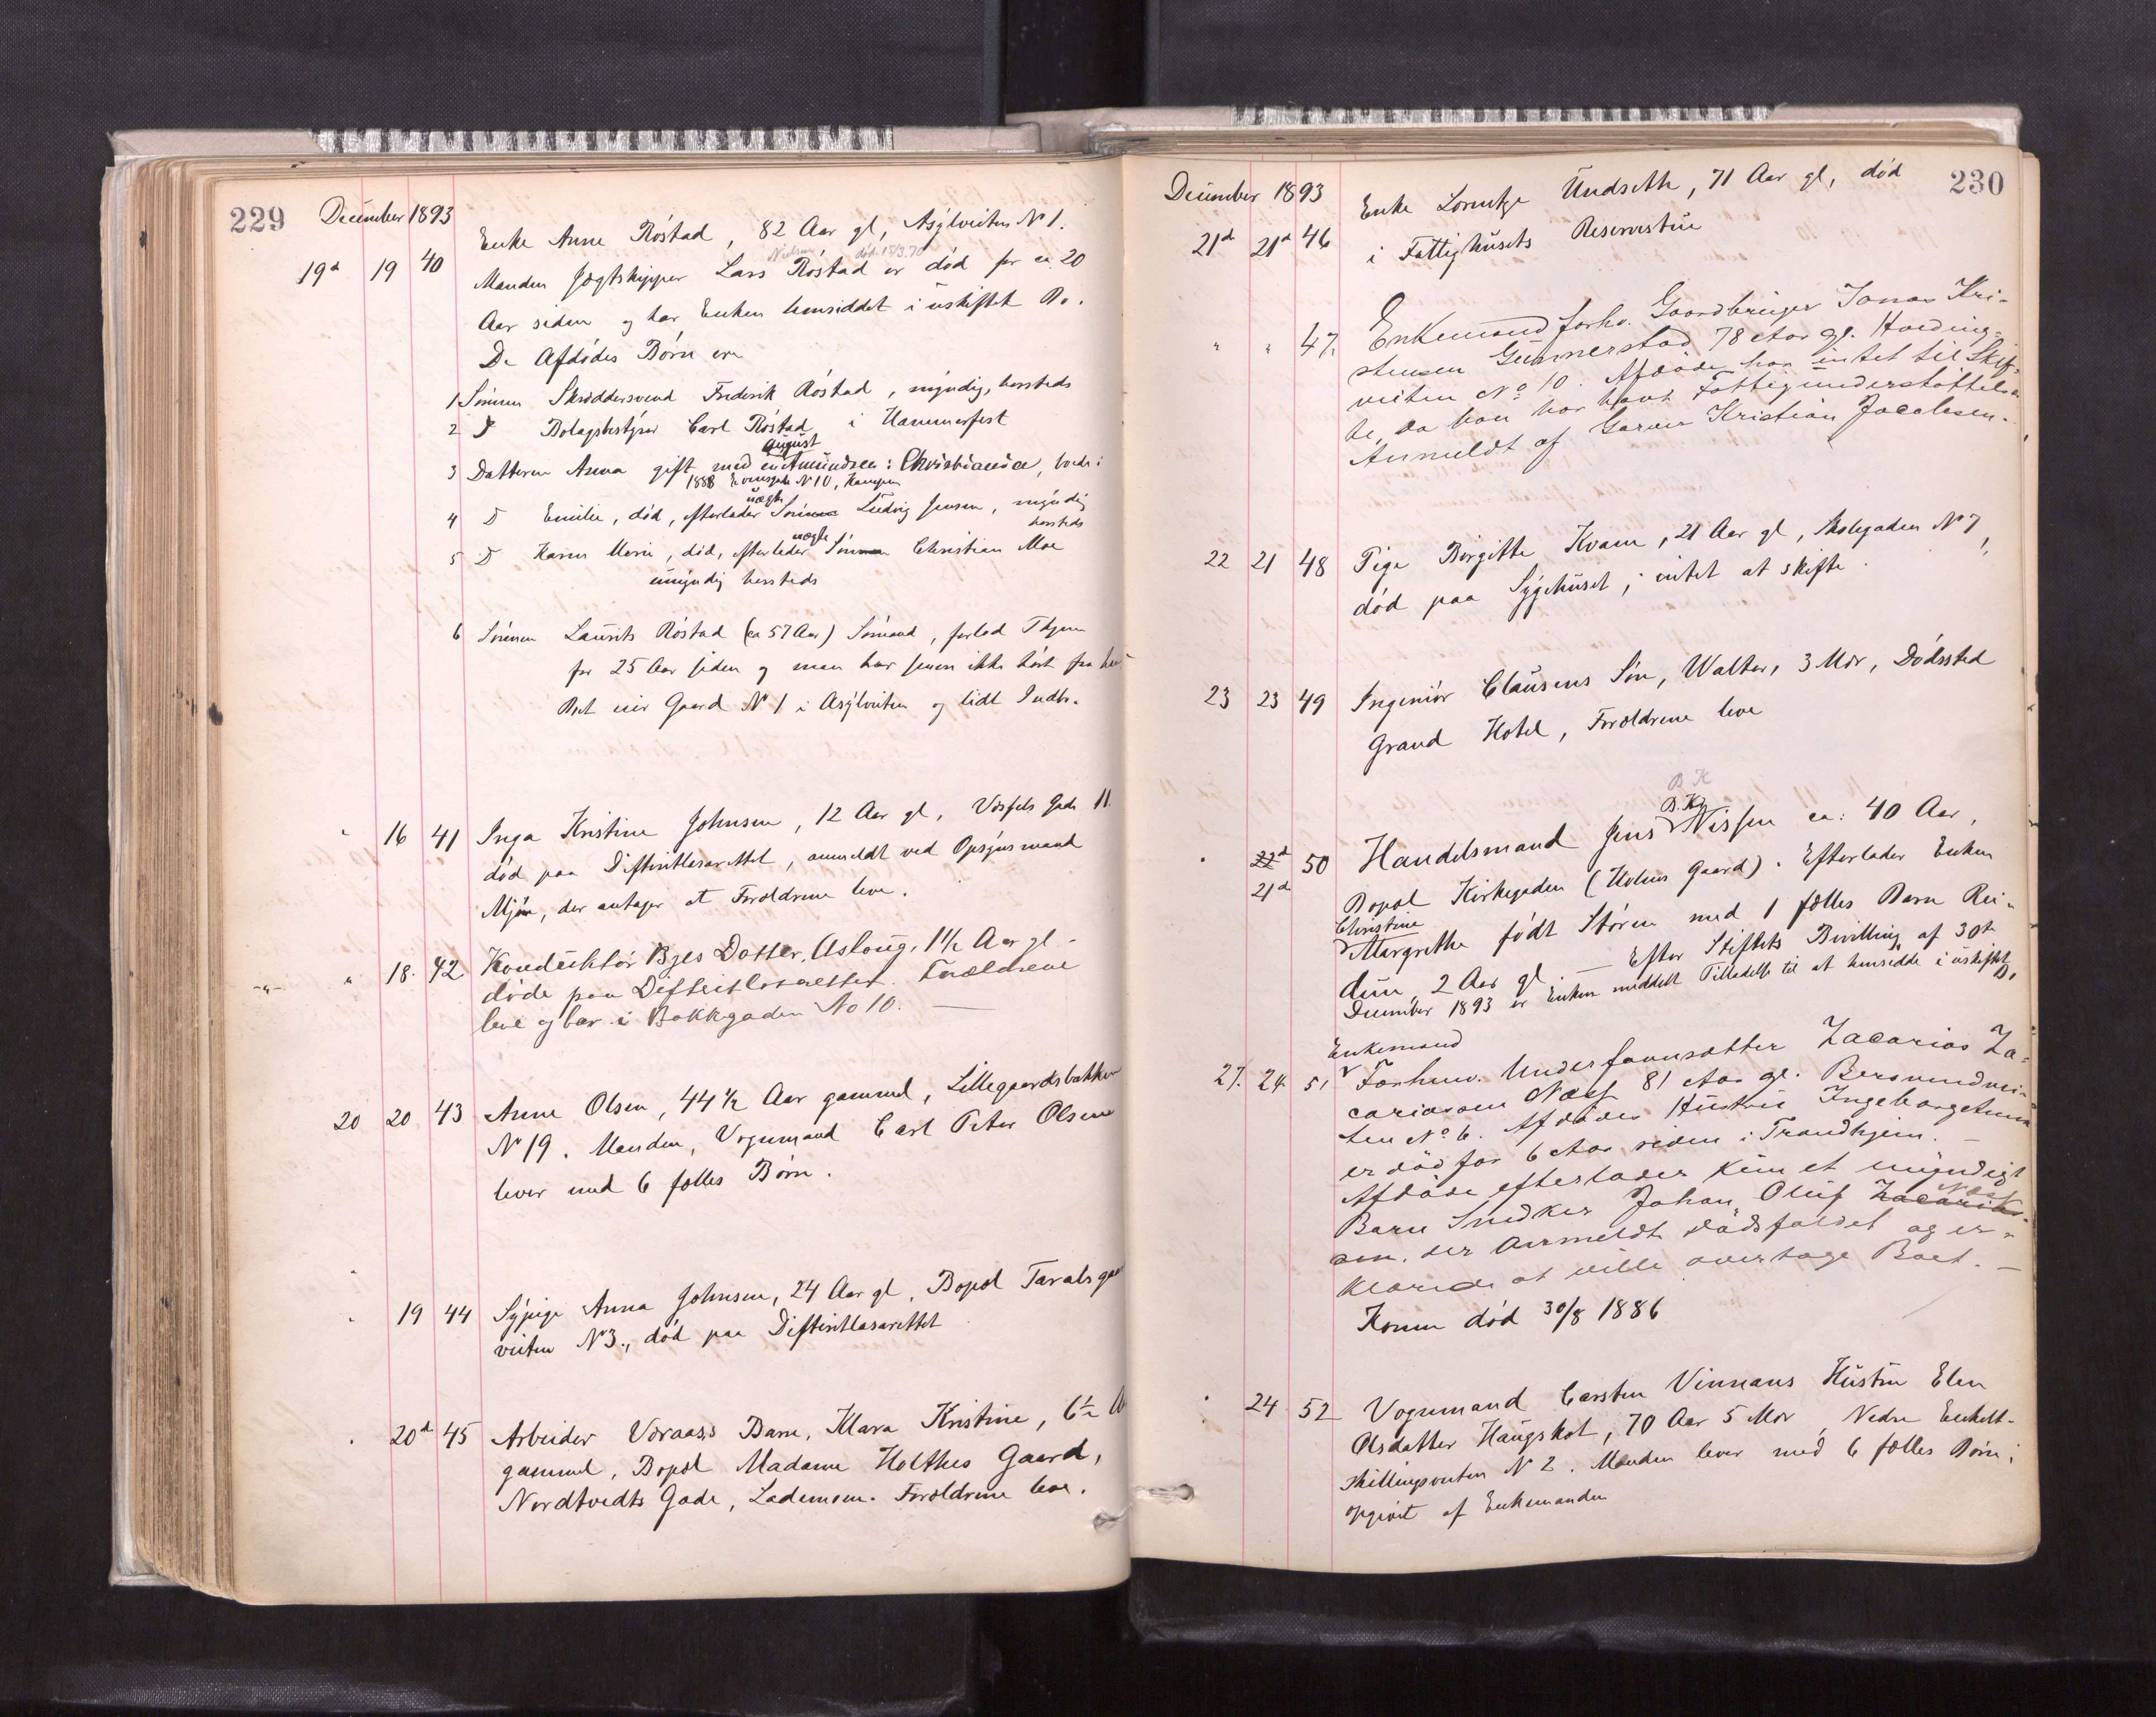 229 December 1893
19d 19 40 Enke Anne Röstad, 82 Aar gl, Asylveiten No 1.
død 15/3.70
Manden Jægtskipper Lars Röstad er död for ca 20
Aar siden og har Enken hensiddet i uskiftet Bo.
De Afdödes Börn ere
1 Sönnen Skræddersvend Frederik Röstad, myndig, hersteds
2 D Bolagsbestyrer Carl Röstad i Hammerfest
august
3 Datteren Anna gift med Amundsen: Christiania, boede i
1888 No 10, Kampen
uægte
4 D Emilie, död, efterlader Sönnen Ludvig Jensen, myndig
hersteds
uægte
5 D Karen Marie, död, efterlader Sönnen Christian Moe
umyndig hersteds
6 Sönnen Laurits Röstad (ca 57 Aar) Sömand, forlod Thjem
for 25 Aar siden og man har senere ikke hört fra ham
Boet eier Gaard No 1 i Asylveiten og lidt Indbo.
" 16 41 Inga Kristine Johnsen, 12 Aar gl, Vosfelts Gade 11.
död paa Difteritlasarettet, anmeldt ved Opsynsmand
Mjöen, der antager at Forældrene leve.
-"- " 18. 42. Konduktör Byes Datter, Aslaug, 1½ Aar gl -
døde paa Difteritlasarettet. Forældrene
leve og bor i Bakkgaden No 10. —
20 20 43 Anne Olsen, 44½ Aar gammel, Lillegaardsbakken
No 19. Manden, Vognmand Carl Peter Olsen
lever med 6 fælles Börn.
" 19 44 Sypige Anna Johnsen, 24 Aar gl, Bopæl Taraldsgaard
veiten No 3., död paa Difteritlasarettet
" 20d 45 Arbeider Voraass Barn, Klara Kristine, 6½ A
gammel, Bopæl Madame Holthes Gaard,
Nordtvedts Gade, Lademoen. Forældrene leve.
December 1893 230
21d 21d 46 Enke Lorentze Undseth, 71 Aar gl, död
i Fattighusets Reservestue
" " 47. Enkemand forhv. Gaardbruger Jonas Kri-
stensen Gunnerstad 78 Aar gl. Hveding-
veiten No 10. Afdöde har intet til Skif-
te, da han har havt Fattigunderstöttelse
Anmeldt af Garver Kristian Jacobsen.
22 21 48 Pige Birgitte Kvam, 21 Aar gl, Skolegaden No 7,
död paa Sygehuset, intet at skifte.
23 23 49 Ingeniör Clausens Sön, Walter, 3 Mdr, Dödssted
Grand Hotel, Forældrene leve
B K
B. K.
" 22d 50 Handelsmand Jens Nissen ca: 40 Aar,
21d Bopæl Kirkegaden (Holms Gaard). Efterlader Enken
Christine
Margrethe födt Stören med 1 fælles Barn Rei-
dun, 2 Aar gl. — Efter Stiftets Bevilling af 30te
December 1893 er Enken meddelt Tilladelse til at hensidde i uskiftet Bo
Enkemand
27. 24. 51 Forhenv. Underfoansætter Zacarias Za-
cariasen Næss 81 Aar gl. Bersvendvei-
ten No 6. Afdödes Hustru Ingeborg Anna
er död for 6 Aar siden i Trondhjem. —
Afdöde efterlader kun et myndigt
Næss
Barn Snedker Johan Oluf Zacarias-
sen, der anmeldt dödsfaldet og er-
klærede at ville overtage Boet. —
Konen död 30/8 1886
" 24 52 Vognmand Carsten Vinnans Hustru Elen
Olsdatter Haugskot, 70 Aar 5 Mdr, Nedre Enkelt-
skillingsveiten No 2. Manden lever med 6 fælles Börn;
opgivet af Enkemanden